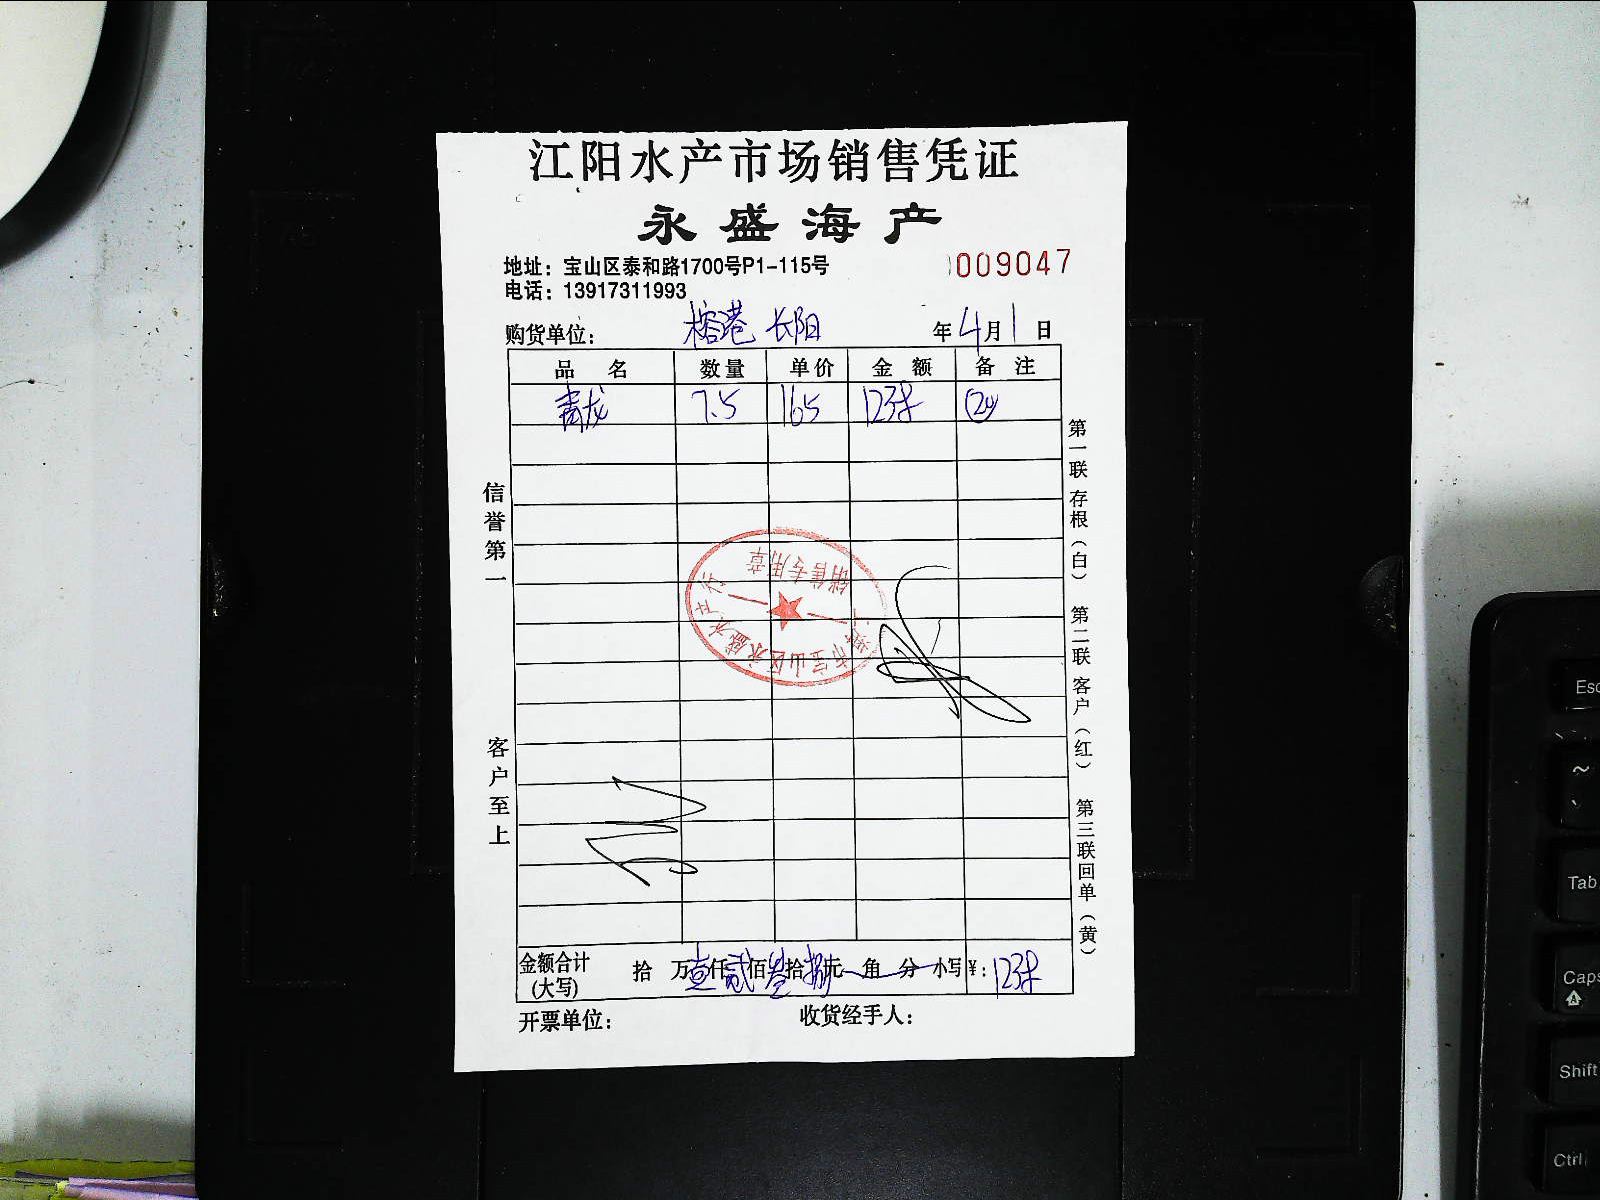 江阳水产市场销售凭证
永盛海产
地址：宝山区泰和路1700号P1-115号
009047
电话：13917311993
购货单位： 榕港 长阳 年4月1日
品名 数量 单价 金额 备注
青龙 7.5 165 1238
信誉第一
客户至上
第一联存根（白） 第二联客户（红） 第三联回单（黄）
市宝山区永盛水产行
销售专用章
金额合计(大写) 拾万壹仟贰佰叁拾捌元角分 小写¥：1238
开票单位： 收货经手人：